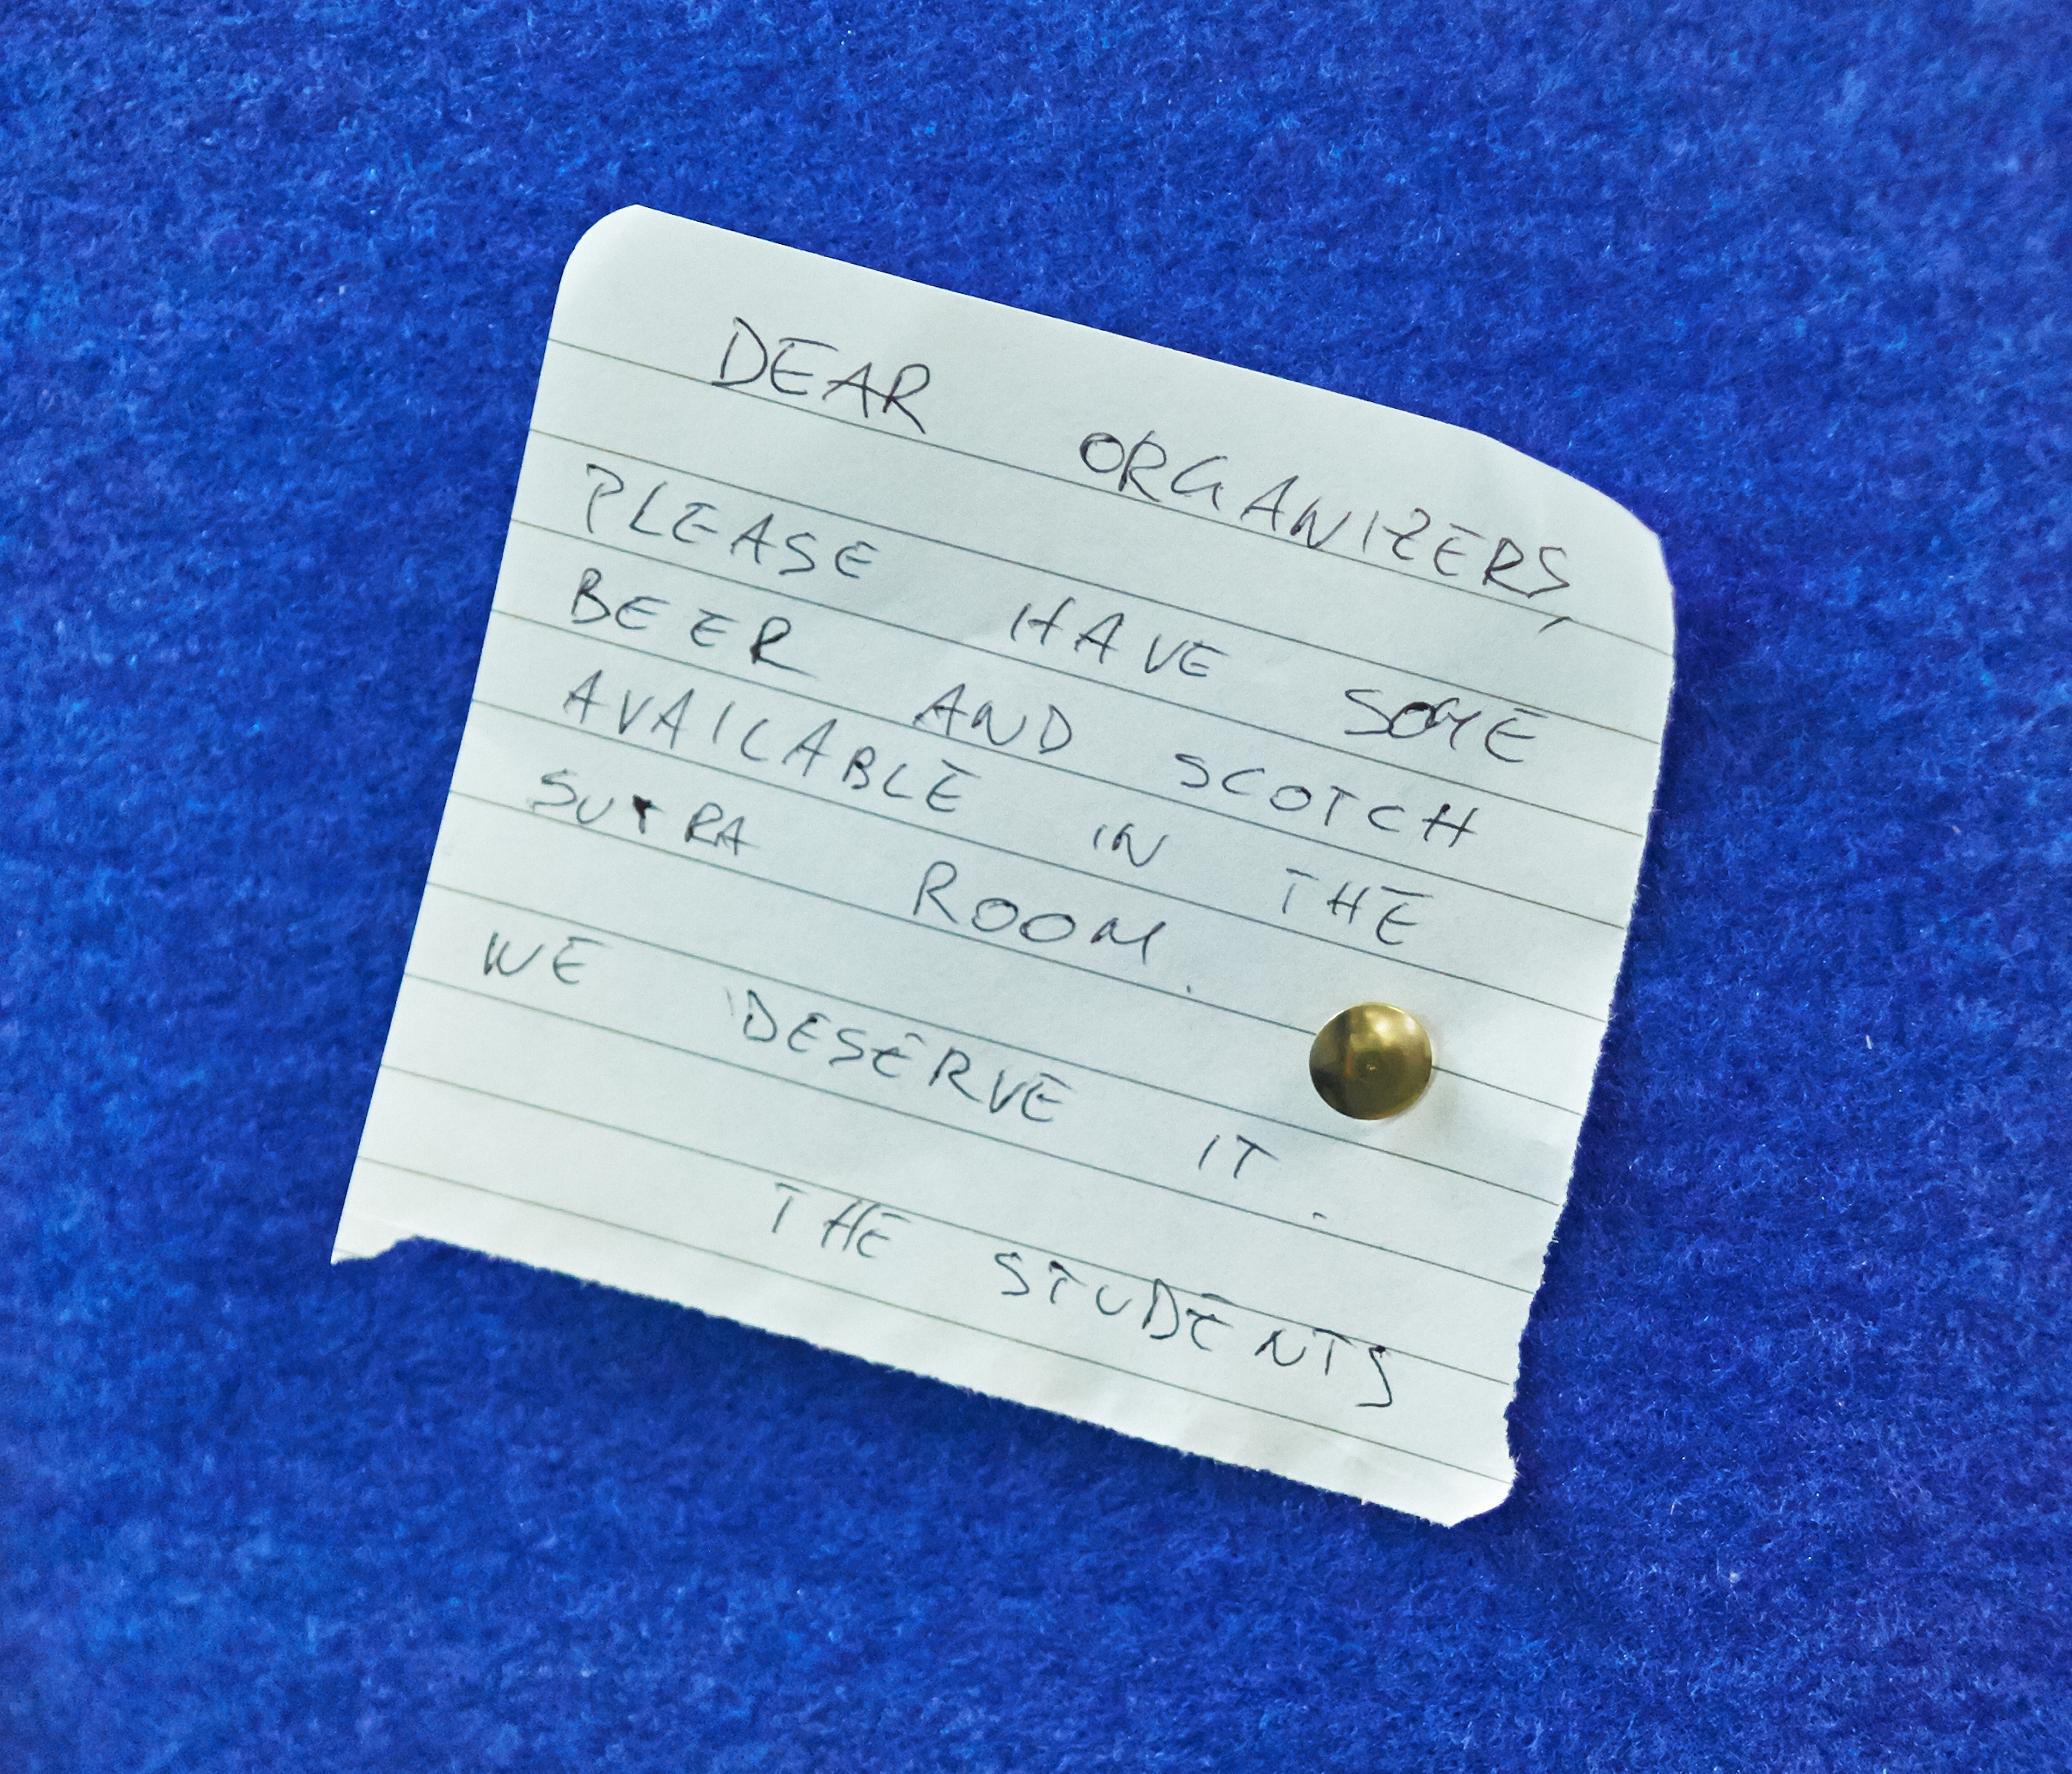 DEAR ORGANIZERS,
PLEASE HAVE SOME
BEER AND SCOTCH
AVAILABLE IN THE
SUTRA ROOM.
WE DESERVE IT.
THE STUDENTS